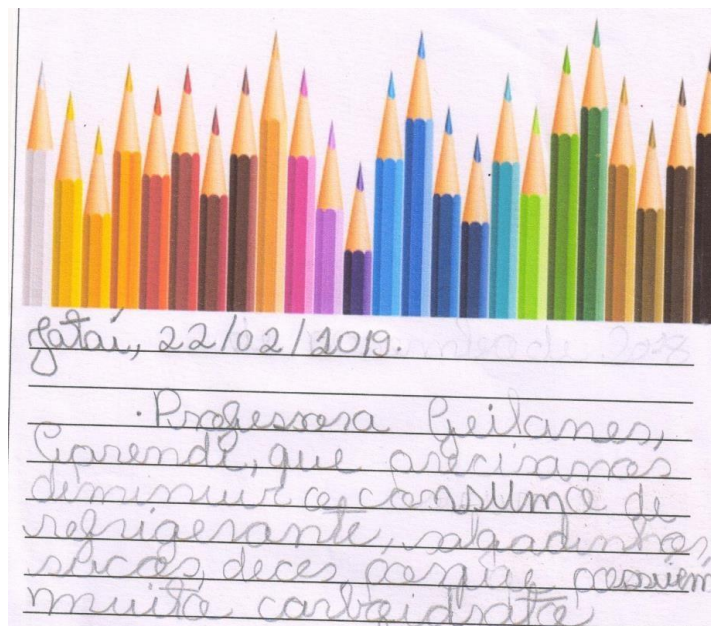 Jataí, 22/02/2019.
Professora Geilanes,
Eu aprendi, que precisamos
diminuir o consumo de
refrigerante, salgadinhos,
sucos, doces porque possuem
muita carboidrato